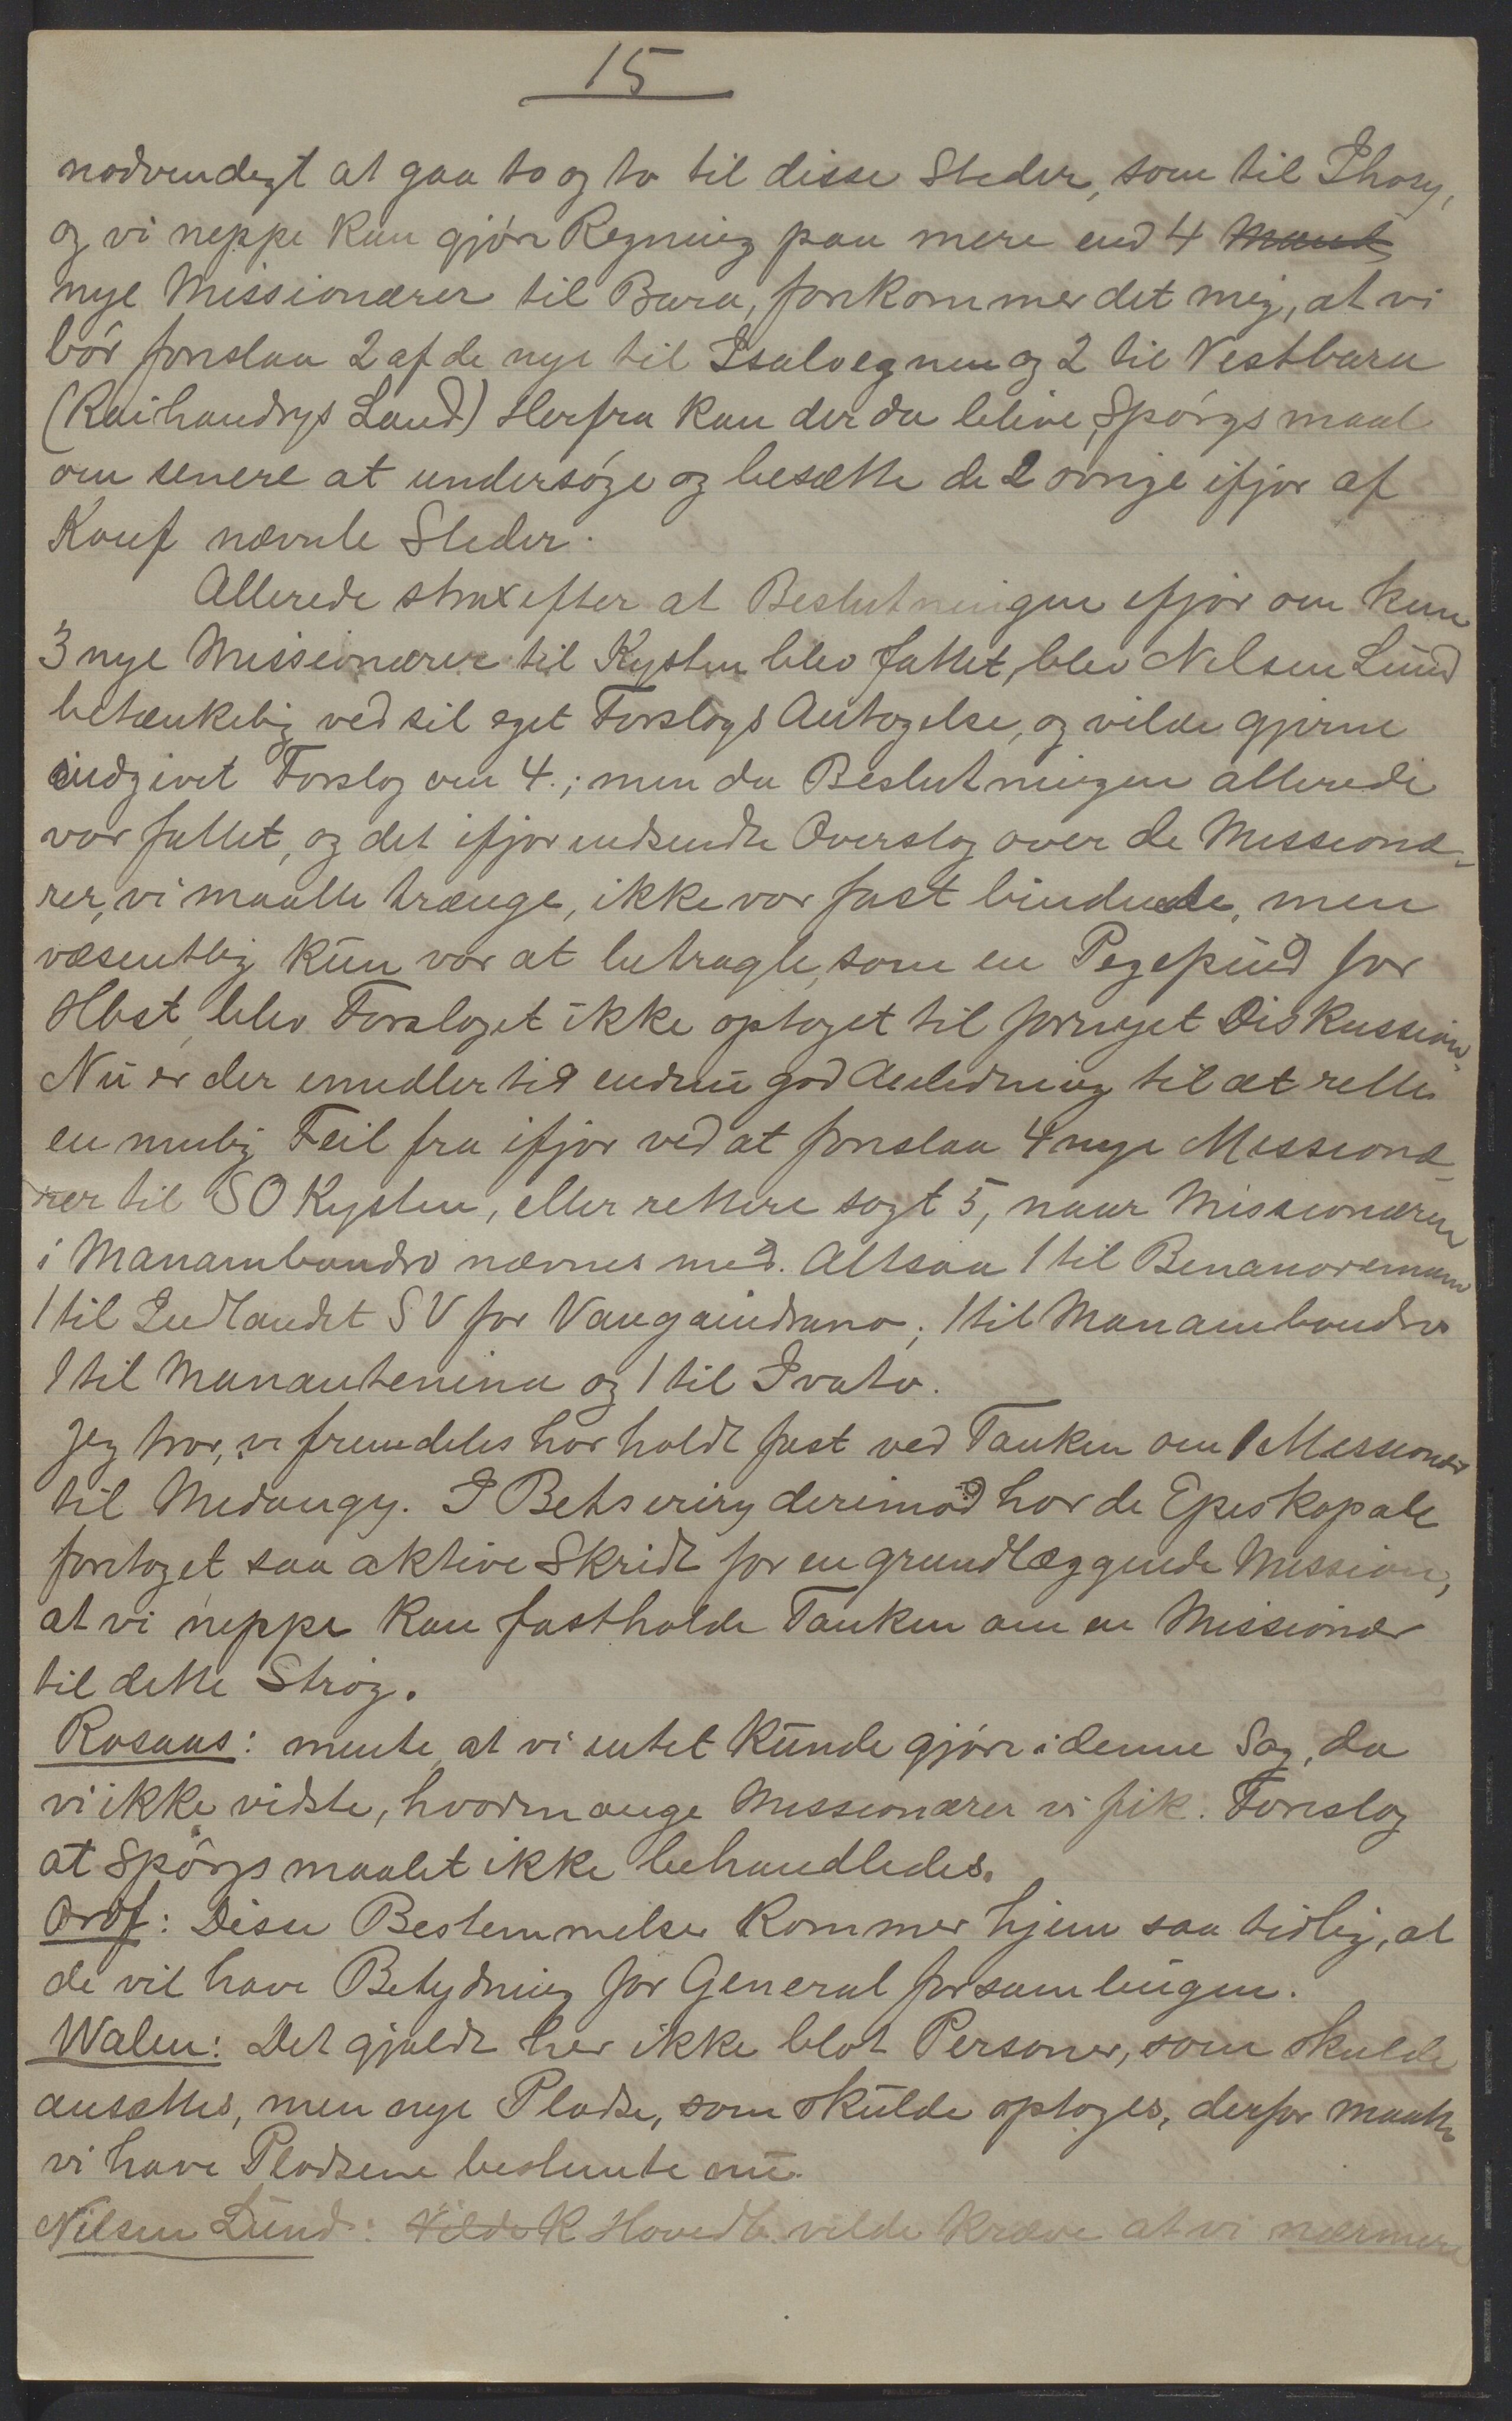 15
nødvendigt at gaa to og to til disse Steder, som til Ihosy,
og vi neppe kan gjøre Regning paa mere end 4
nye Missionærer til Bara, forekommer det mig, at vi
bør foreslaa 2 af de nye til Isaloegnen og 2 til Vestbara
(Raihandrys Land) Herfra kan der da blive Spørgsmaal
om senere at undersøge og besætte de 2 øvrige ifjor af
Konf nævnte Steder.
Allerede strax efter at Beslutningen ifjor om kun
3 nye Missionærer til Kysten blev fattet, blev Nilsen Lund
betænkelig ved sit eget Forslags Antagelse, og vilde gjerne
indgivet Forslag om 4.; men da Beslutningen allerede
var fattet, og det ifjor indsendte Overslag over de Missionæ-
rer, vi maatte trænge, ikke var fast bindende, men
væsentlig kun var at betragte, som en Pegepind for
Hbst, blev Forslaget ikke optaget til fornyet Diskussion.
Nu er der imidlertid endnu god Anledning til at rette
en mulig Feil fra ifjor ved at foreslaa 4 nye Missionæ-
rer til SO Kysten, eller rettere sagt 5, naar Missionæren
i Manambondro nævnes med. Altsaa 1 til Benanoremana
1 til Indlandet SV for Vangaindrano; 1 til Manambondro
1 til Manantenina og 1 til Ivato.
Jeg tror, vi fremdeles bør holdt fast ved Tanken om 1 Missionær
til Midongy. I Betsiriry derimod har de Episkopale
foretaget saa aktive Skridt for en grundlæggende Mission,
at vi neppe kan fastholde Tanken om en Missionær
til dette Strøg.
Rosaas: mente, at vi intet kunde gjøre i denne Sag, da
vi ikke vidste, hvormange Missionærer vi fik. Foreslog
at Spørgsmaalet ikke behandledes.
Ordf: Disse Bestemmelser kommer hjem saa tidlig, at
de vil have Betydning for Generalforsamlingen.
Walen: Det gjaldt her ikke blot Personer, som skulde
ansættes, men nye Pladse, som skulde optages, derfor maatte
vi have Pladsene bestemte nu.
Nilsen Lund: Vilde K Hovedb. vilde kræve at vi nærmere